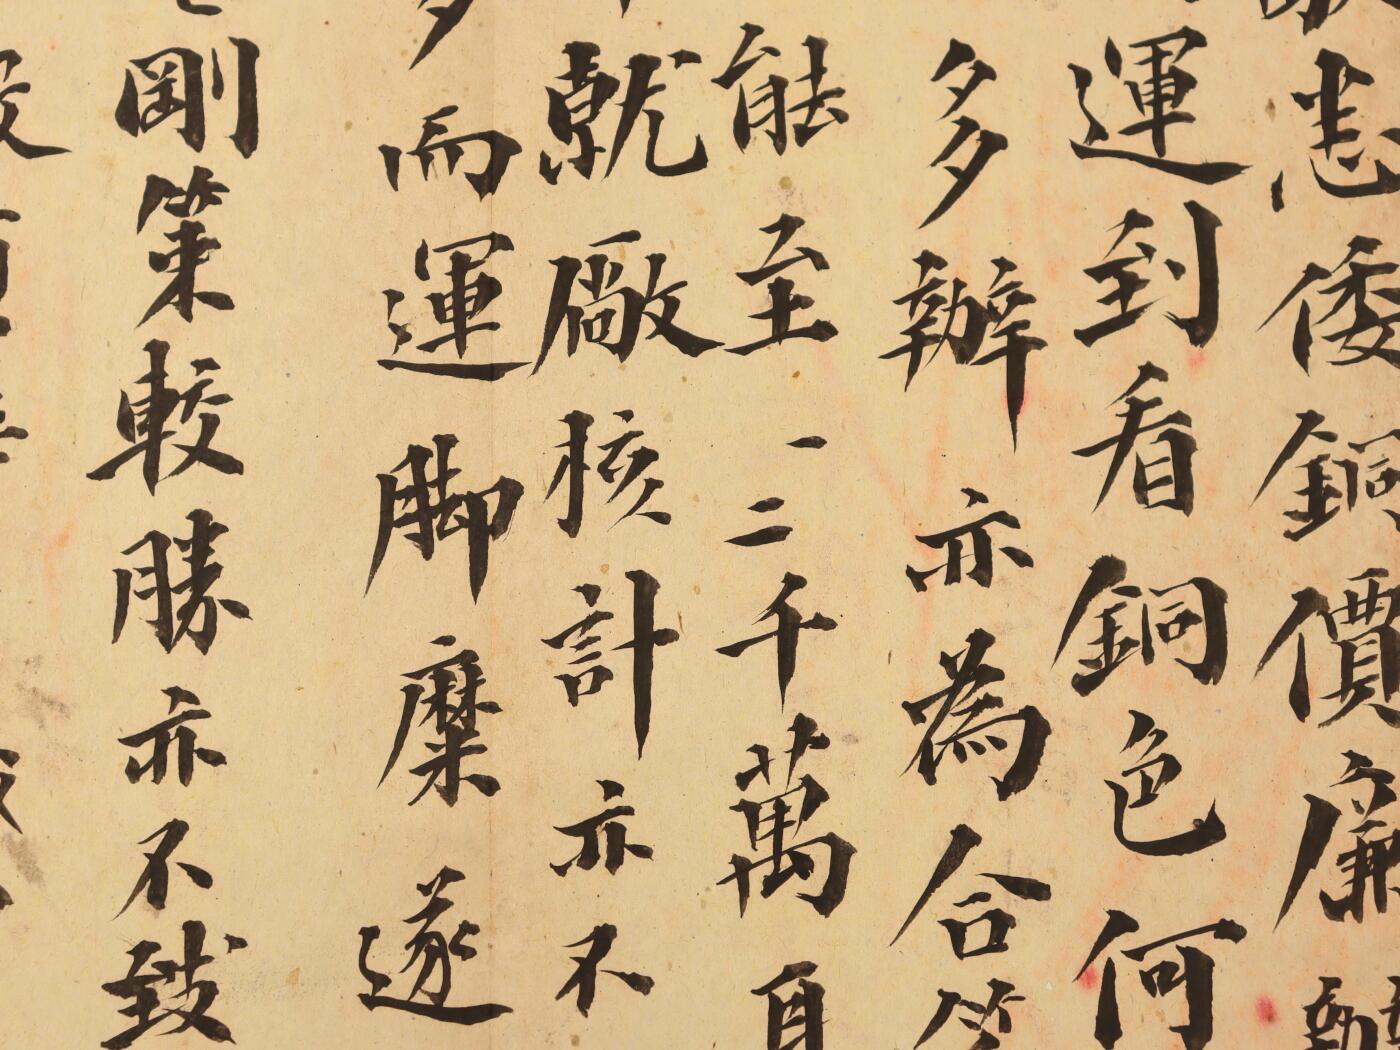 倭銅價廉
運到看銅色何
多辦亦為合算
能至一二千萬自
就廠核計亦不
多而運脚糜遂
剛策較勝亦不致